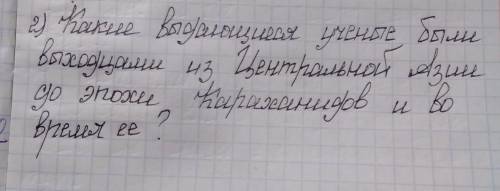 2) Какие выдающиеся ученые были
выходцами из Центральной Азии
до эпохи Караханидов и во
время ее?